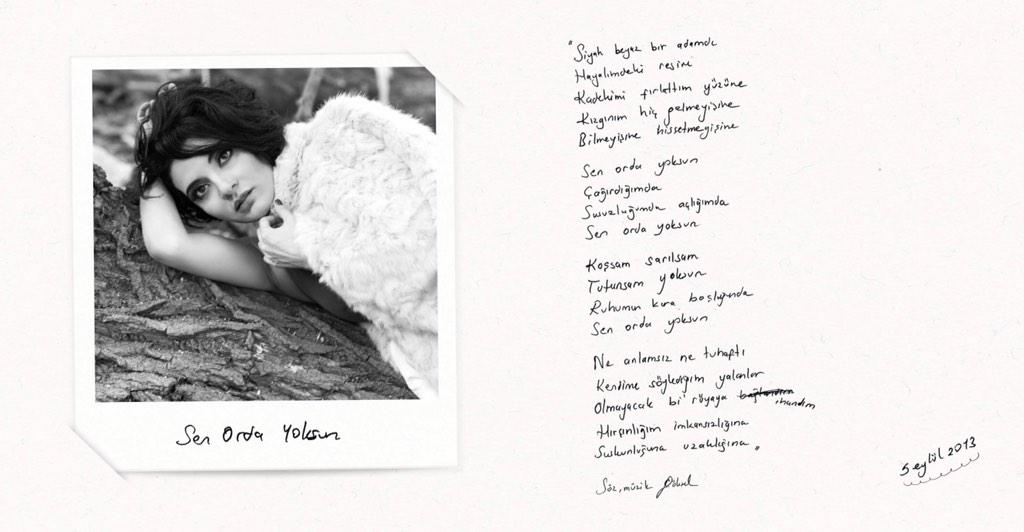 Sen Orda Yoksun
"Siyah beyaz bir adamdı
Hayalimdeki resim
Kadehimi fırlattım yüzüne
Kızgınım hiç gelmeyişine
Bilmeyişine hissetmeyişine
Sen orda yoksun
Çağırdığımda
Susuzluğumda açlığımda
Sen orda yoksun
Koşsam sarılsam
Tutunsam yoksun
Ruhumun kara boşluğunda
Sen orda yoksun
Ne anlamsız ne tuhaftı
Kendime söylediğim yalanlar
Olmayacak bi' rüyaya bağlandım inandım
Hırçınlığım imkansızlığına
Suskunluğuna uzaklığına"
Söz, müzik Göksel
5 eylül 2013